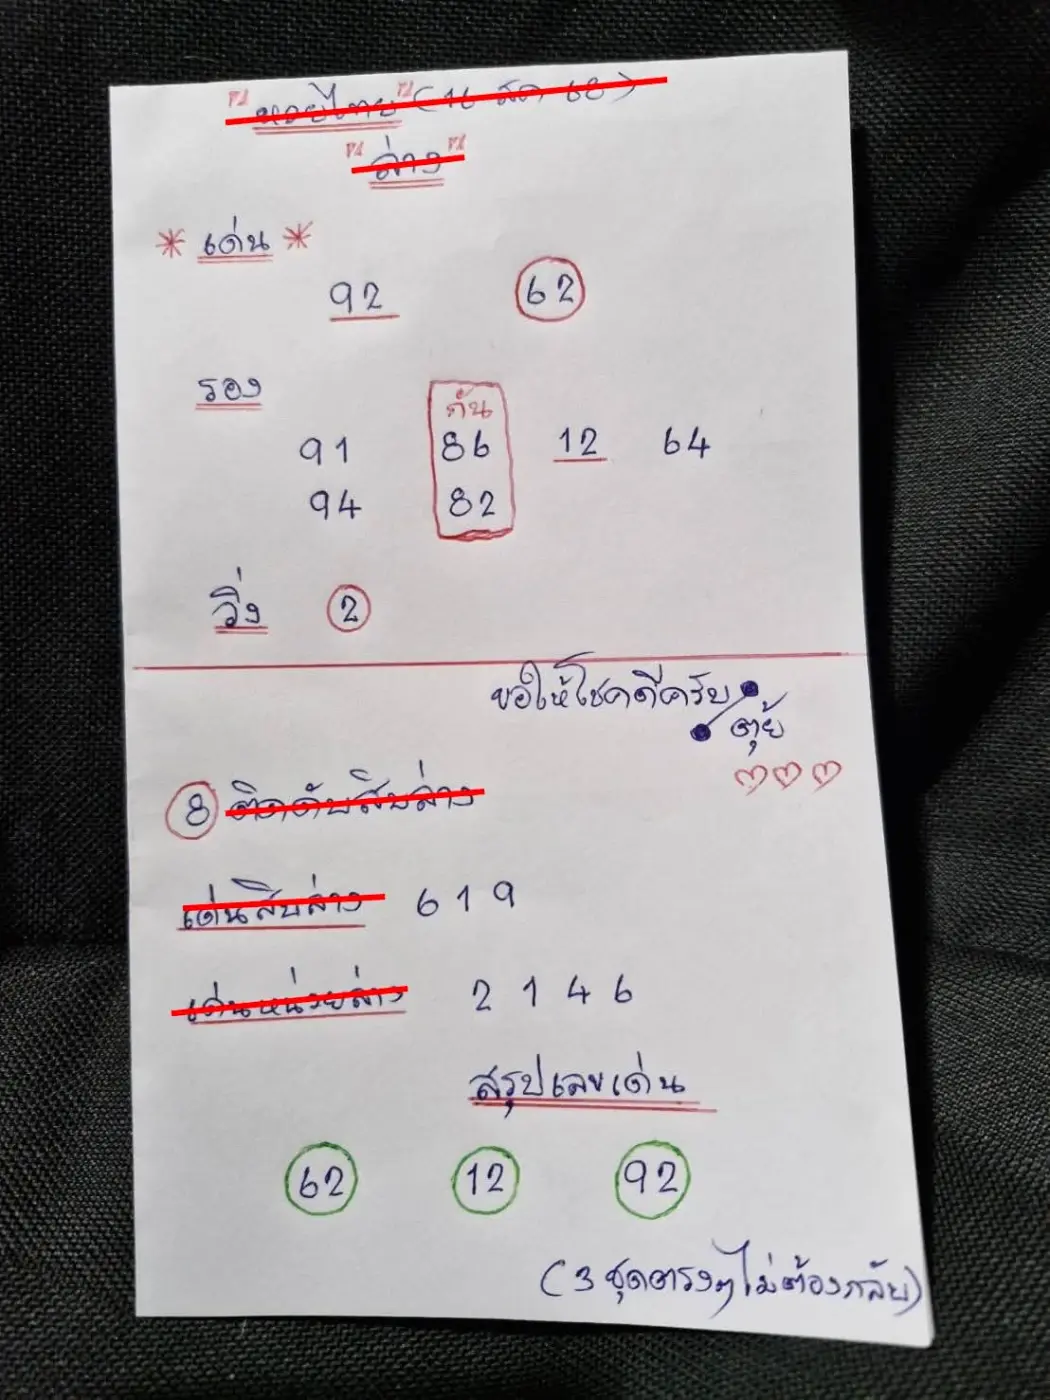 "หวยไทย" (16 สค 68)
"ล่าง"
* เด่น *
92 62
รอง
กัน
91 86 12 64
94 82
วิ่ง 2
ขอให้โชคดีครับ
ตุ้ย
8 ติดดับสิบล่าง
เด่นสิบล่าง 6 1 9
เด่นหน่วยล่าง 2 1 4 6
สรุปเลขเด่น
62 12 92
(3 ชุดตรงๆ ไม่ต้องกลับ)